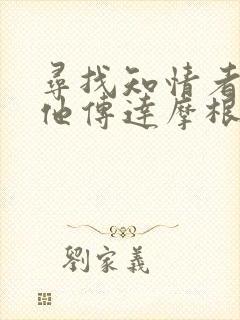 尋找知情者
他傳達摩根
劉家義